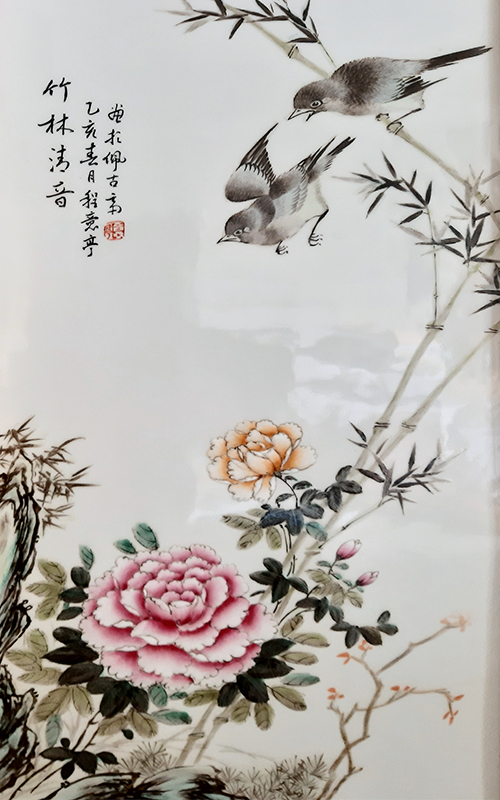 竹林清音
乙亥春月程意亭
画於佩古斋